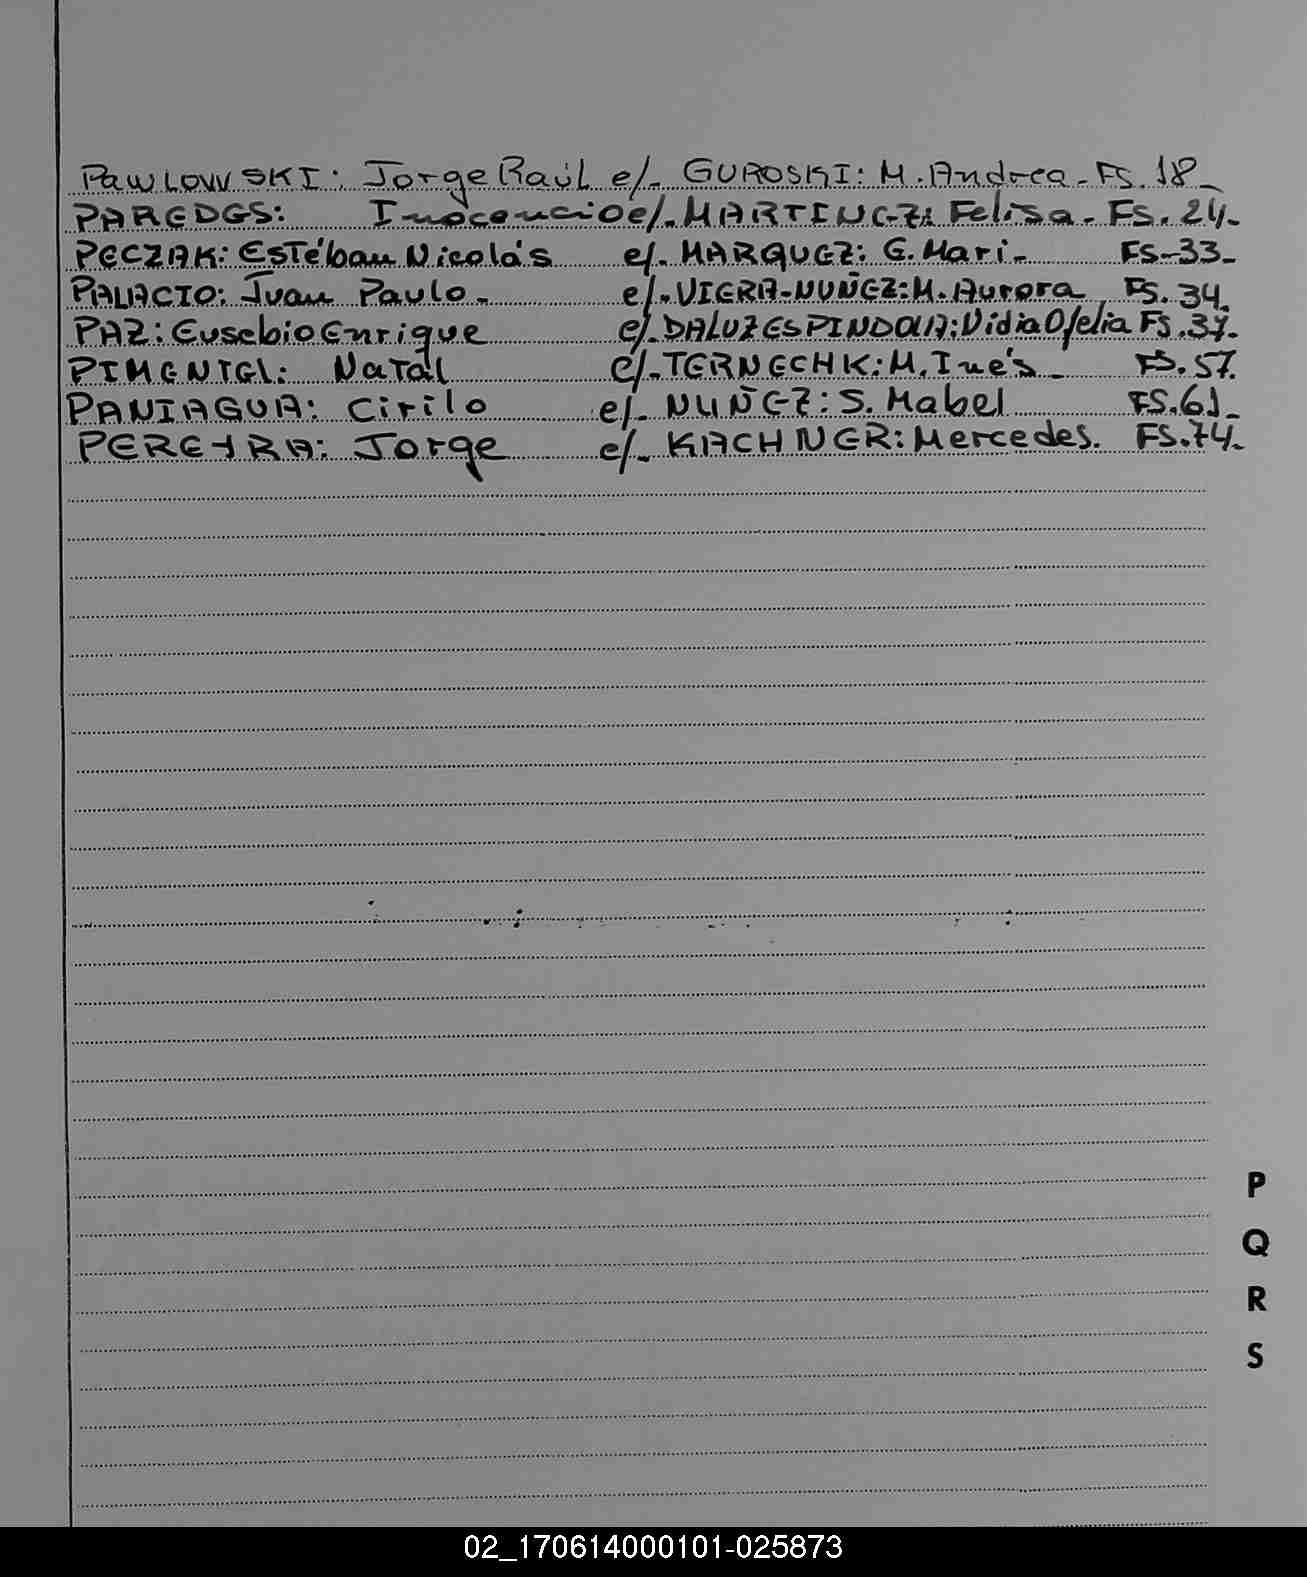 PAWLOWSKI: Jorge Raúl c/. GUROSKI: M. Andrea - FS. 18_
PAREDES: Inocencio c/. MARTINEZ: Felisa - FS. 24_
PECZAK: Estéban Nicolás c/. MARQUEZ: G. Mari_ FS-33_
PALACIO: Juan Paulo_ c/. VIERA-NUÑEZ: M. Aurora FS. 34.
PAZ: Eusebio Enrique c/. DALUZ ESPINDOLA: Vidia Ofelia FS. 37.
PIMENTEL: Natal c/. TERNECHK: M. Inés_ FS. 57.
PANIAGUA: Cirilo c/. NUÑEZ: S. Mabel FS. 61_
PEREYRA: Jorge c/. KACHNER: Mercedes. FS. 74_
P
Q
R
S
02_170614000101-025873